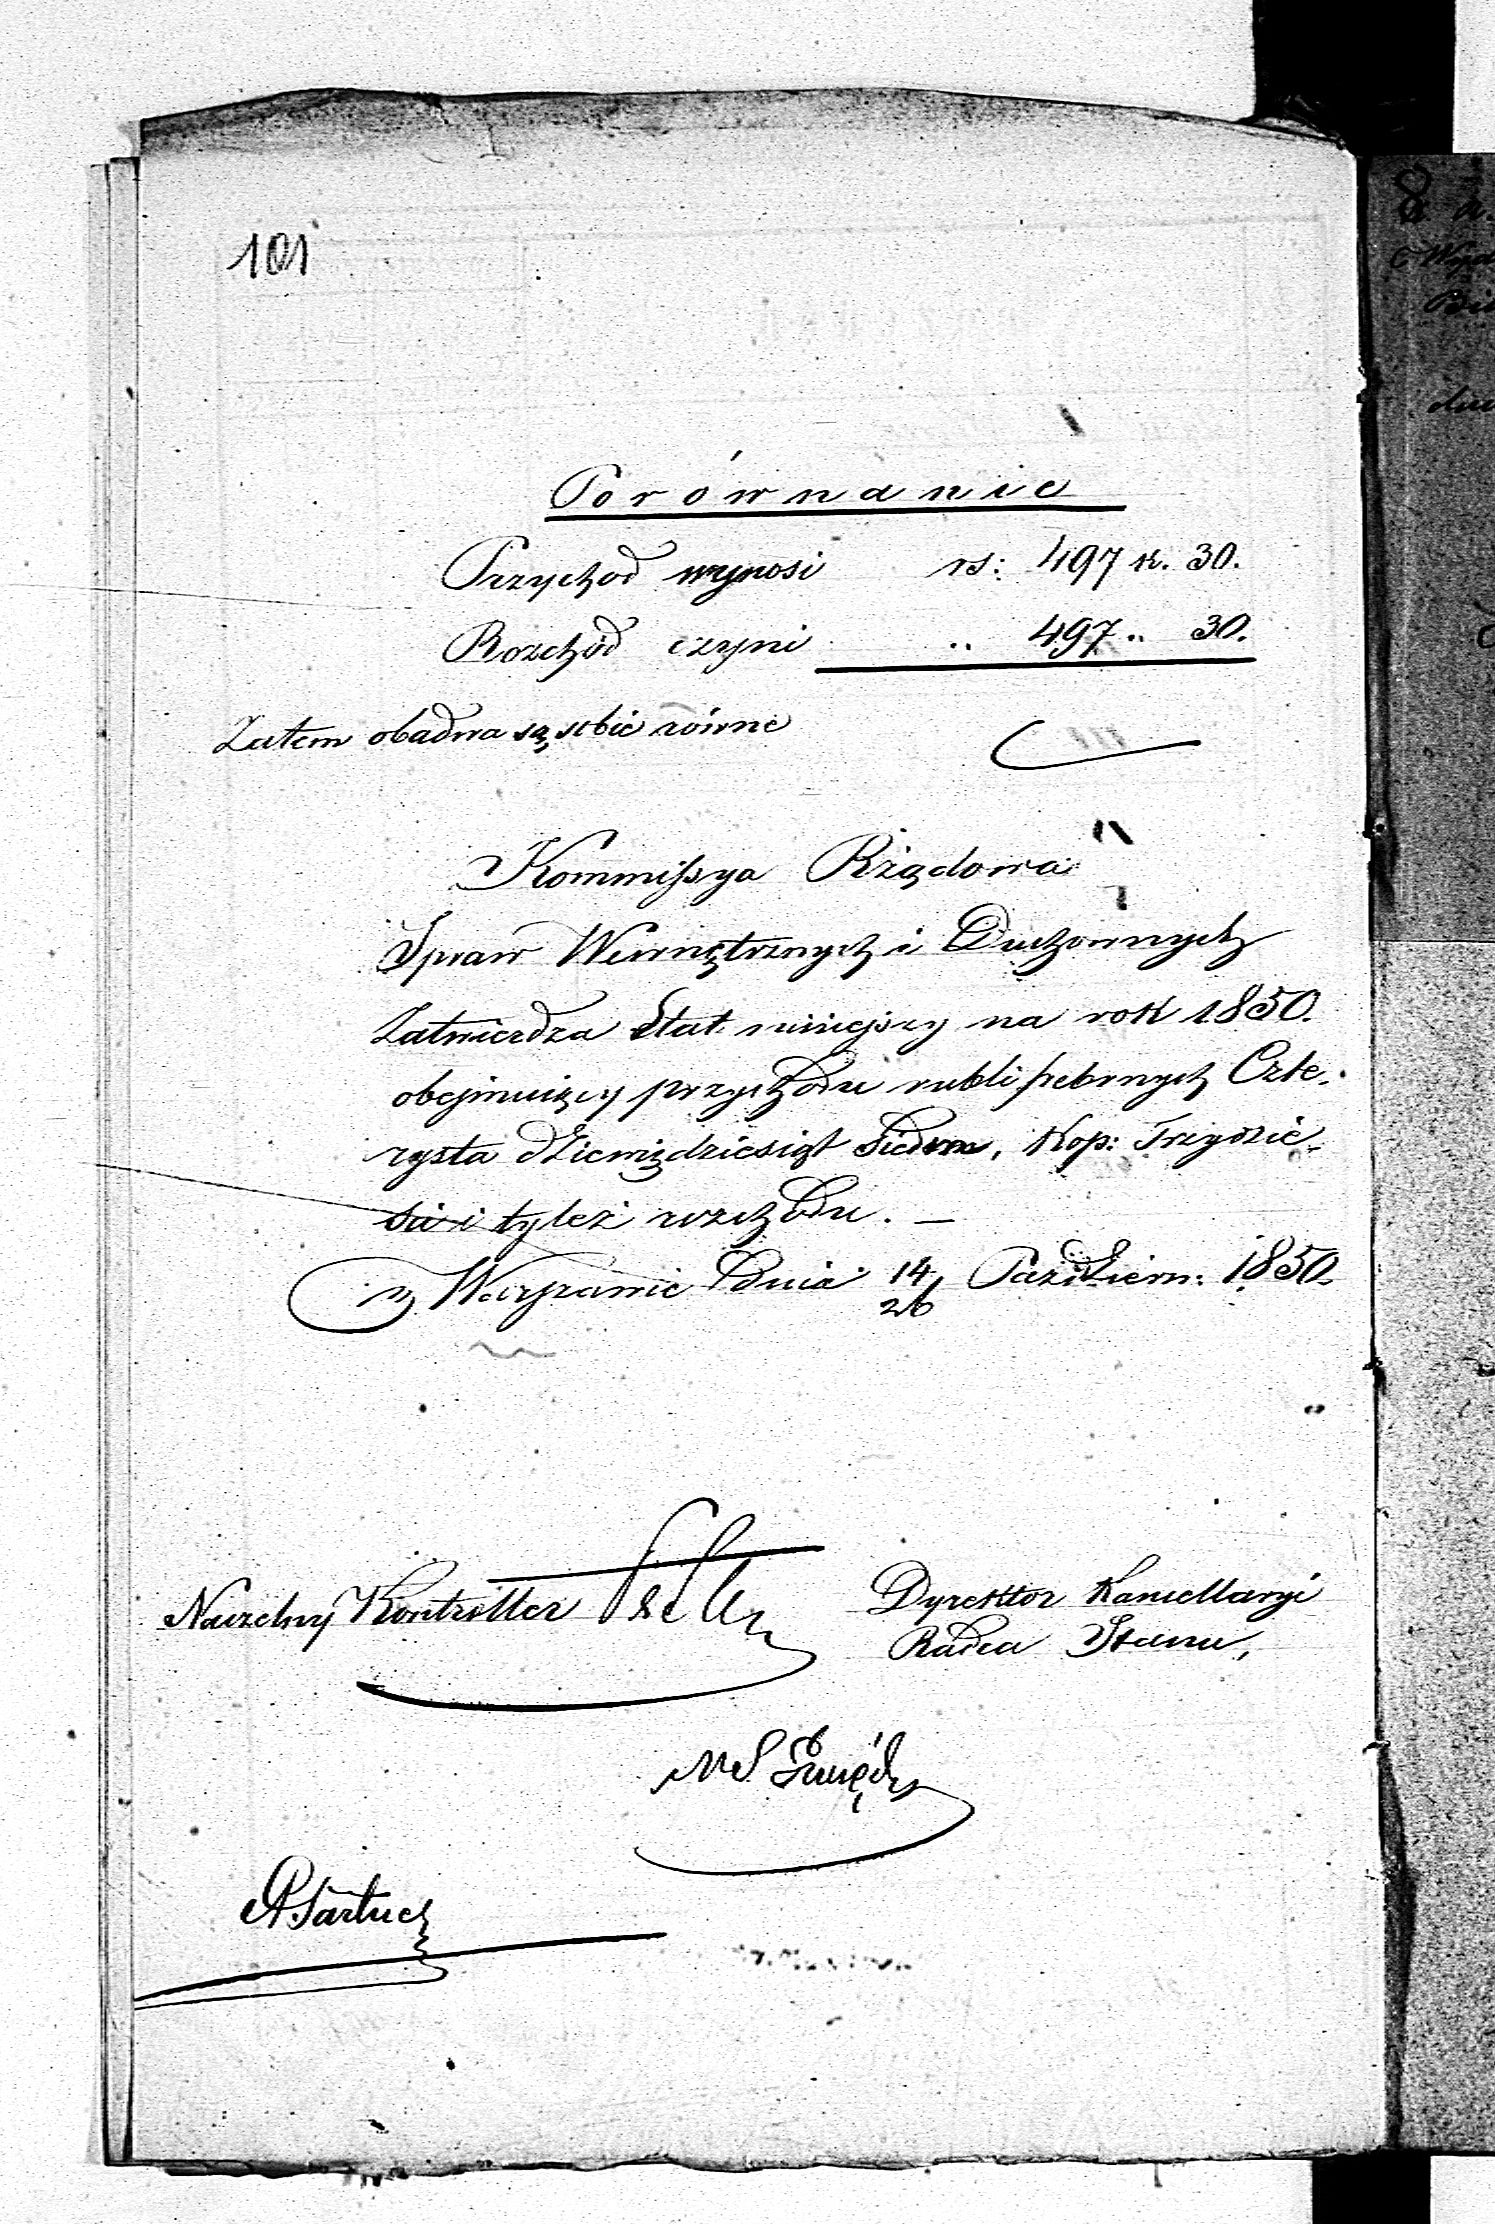 101
Porównanie
Przychod wynosi rs: 497 k. 30.
Rozchód czyni „ 497 „ 30.
Zatem obadwa są sobie równe
Kommissya Rządowa
Spraw Wewnętrznych i Duchownych
Zatwierdza Etat niniejszy na rok 1850.
obejmuiący przychodu rubli srebrnych Czte-
rysta dziewiędziesiąt siedm, Kop: Trzydzie-
ści i tyleż rozchodu. —
w Warszawie dnia 14/26 Październ: 1850.
Naczelny Kontroller
Dyrektor Kancellaryi
Radca Stanu,